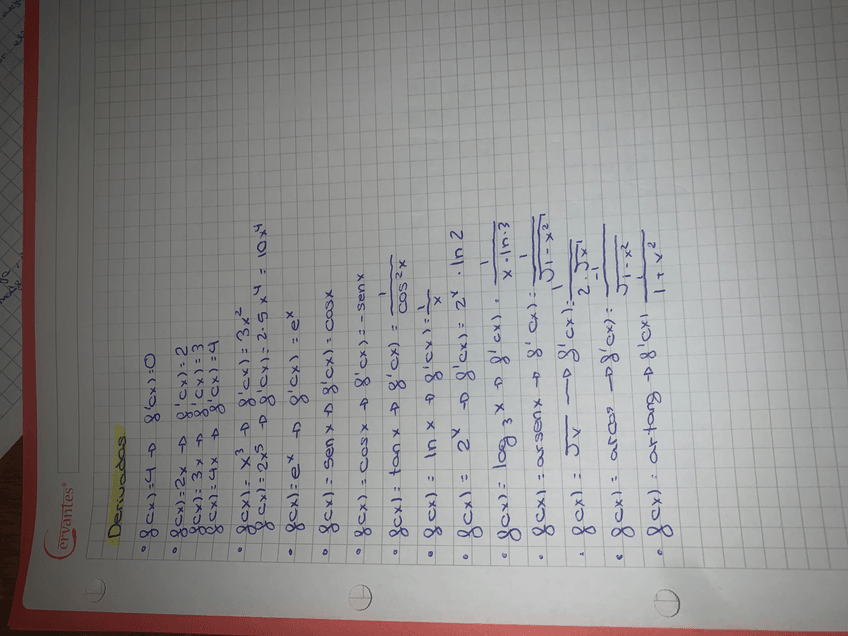 Cervantes®
Derivadas
• f(x)=4 → f'(x)=0
• f(x)=2x → f'(x)=2
f(x)=3x → f'(x)=3
f(x)=4x → f'(x)=4
• f(x)=x³ → f'(x)=3x²
f(x)=2x⁵ → f'(x)=2·5x⁴=10x⁴
• f(x)=eˣ → f'(x)=eˣ
• f(x)=senx → f'(x)=cosx
• f(x)=cosx → f'(x)=-senx
• f(x)=tanx → f'(x)=1/cos²x
• f(x)=lnx → f'(x)=1/x
• f(x)=2ˣ → f'(x)=2ˣ·ln2
• f(x)=log₃x → f'(x)=1/x·ln·3
• f(x)=arsenx → f'(x)=1/√1-x²
• f(x)=√x → f'(x)=1/2·√x
• f(x)=arcos → f'(x)=-1/√1-x²
• f(x)=artang → f'(x)1/1+x²